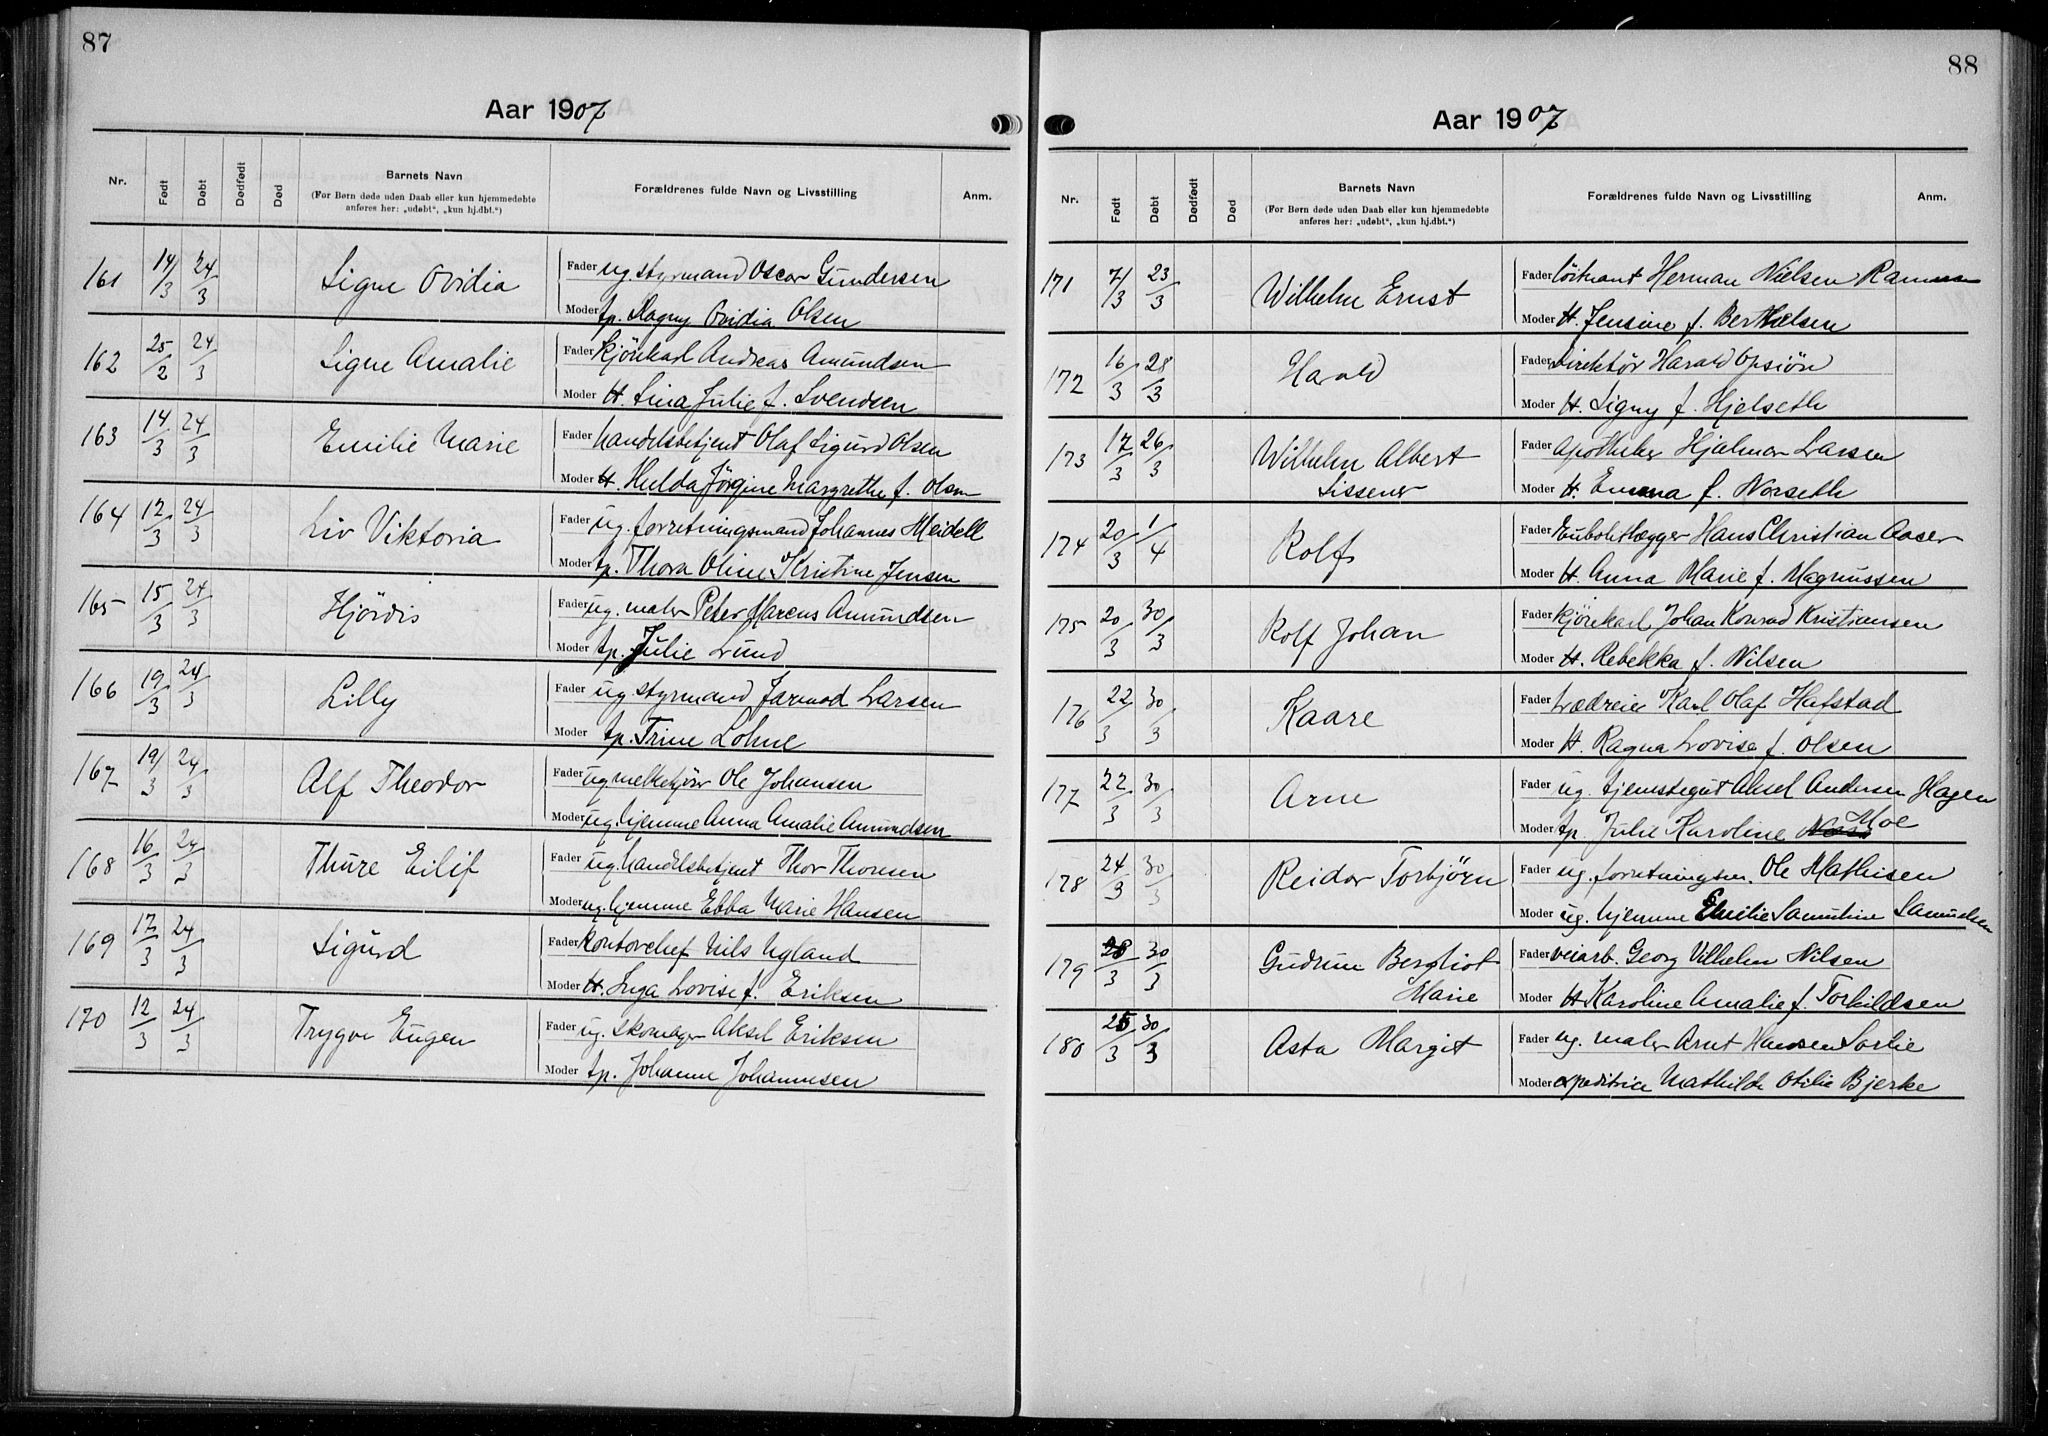 87
Aar 1907
Nr.
Født
Døbt
Dødfødt
Død
Barnets Navn
(For Børn døde uden Daab eller kun hjemmedøbte
anføres her: „udøbt“, „kun hj.dbt.“)
Forældrenes fulde Navn og Livsstilling
Anm.
161 14/3 24/3 Signe Ovidia
Fader ug. styrmand Oscar Gundersen
Moder tp. Dagny Ovidia Olsen
162 25/2 24/3 Signe Amalie
Fader kjørekarl Andreas Amundsen
Moder H. Lina Julie f. Svendsen
163 14/3 24/3 Emilie Marie
Fader handelsbetjent Olaf Sigurd Olsen
Moder H. Hulda Jørgine Margrethe f. Olsen
164 12/3 24/3 Liv Viktoria
Fader ug. forretningsmand Johannes Meidell
Moder tp. Thora Oline Kristine Jensen
165 15/3 24/3 Hjördis
Fader ug. maler Peter Marcus Amundsen
Moder tp. Julie Lund
166 19/3 24/3 Lilly
Fader ug. styrmand Jarmod Larsen
Moder tp. Trine Lohne
167 19/3 24/3 Alf Theodor
Fader ug melkekjører Ole Johansen
Moder ug. hjemme Anna Amalie Amundsen
168 16/3 24/3 Thure Eilif
Fader ug. handelsbetjent Thor Thorsen
Moder ug. hjemme Ebba Marie Hansen
169 17/3 24/3 Sigurd
Fader kontorchef Nils Ugland
Moder H. Inga Lovise f. Eriksen
170 12/3 24/3 Trygve Eugen
Fader ug. skomager Aksel Eriksen
Moder tp. Johanne Johannesen
88
Aar 1907
Nr.
Født
Døbt
Dødfødt
Død
Barnets Navn
(For Børn døde uden Daab eller kun hjemmedøbte
anføres her: „udøbt“, „kun hj.dbt.“)
Forældrenes fulde Navn og Livsstilling
Anm.
171 7/3 23/3 Wilhelm Ernst
Fader löitnant Herman Nielsen
Moder H. Jensine f. Berthelsen
172 16/3 28/3 Harald
Fader Direktør Harald Opsiön
Moder H. Signy f. Hjelseth
173 17/3 26/3 Wilhelm Albert
Lissener
Fader Apotheker Hjalmar Larsen
Moder H. Emma f. Norseth
174 20/3 1/4 Rolf
Fader Hans Christian Aaser
Moder H. Anna Marie f. Magnussen
175 20/3 30/3 Rolf Johan
Fader kjörekarl Johan Konrad Kristiansen
Moder H. Rebekka f. Nilsen
176 22/3 30/3 Kaare
Fader trædreier Karl Olaf Hafstad
Moder H. Ragna Lovise f. Olsen
177 22/3 30/3 Arne
Fader ug. tjenestegut Aksel Andersen Hagen
Moder tp. Julie Karoline Moe
178 24/3 30/3 Reidar Torbjörn
Fader ug. forretningsm. Ole Mathisen
Moder ug. hjemme Emilie Samuline Samuelsen
179 28/3 30/3 Gudrun Bergliot
Marie
Fader veiarb. Georg Vilhelm Nilsen
Moder H Karoline Amalie f. Torkildsen
180 25/3 30/3 Asta Margit
Fader ug. maler Arnt Hansen Sørlie
Moder expeditrice Mathilde Otilie Bjerke